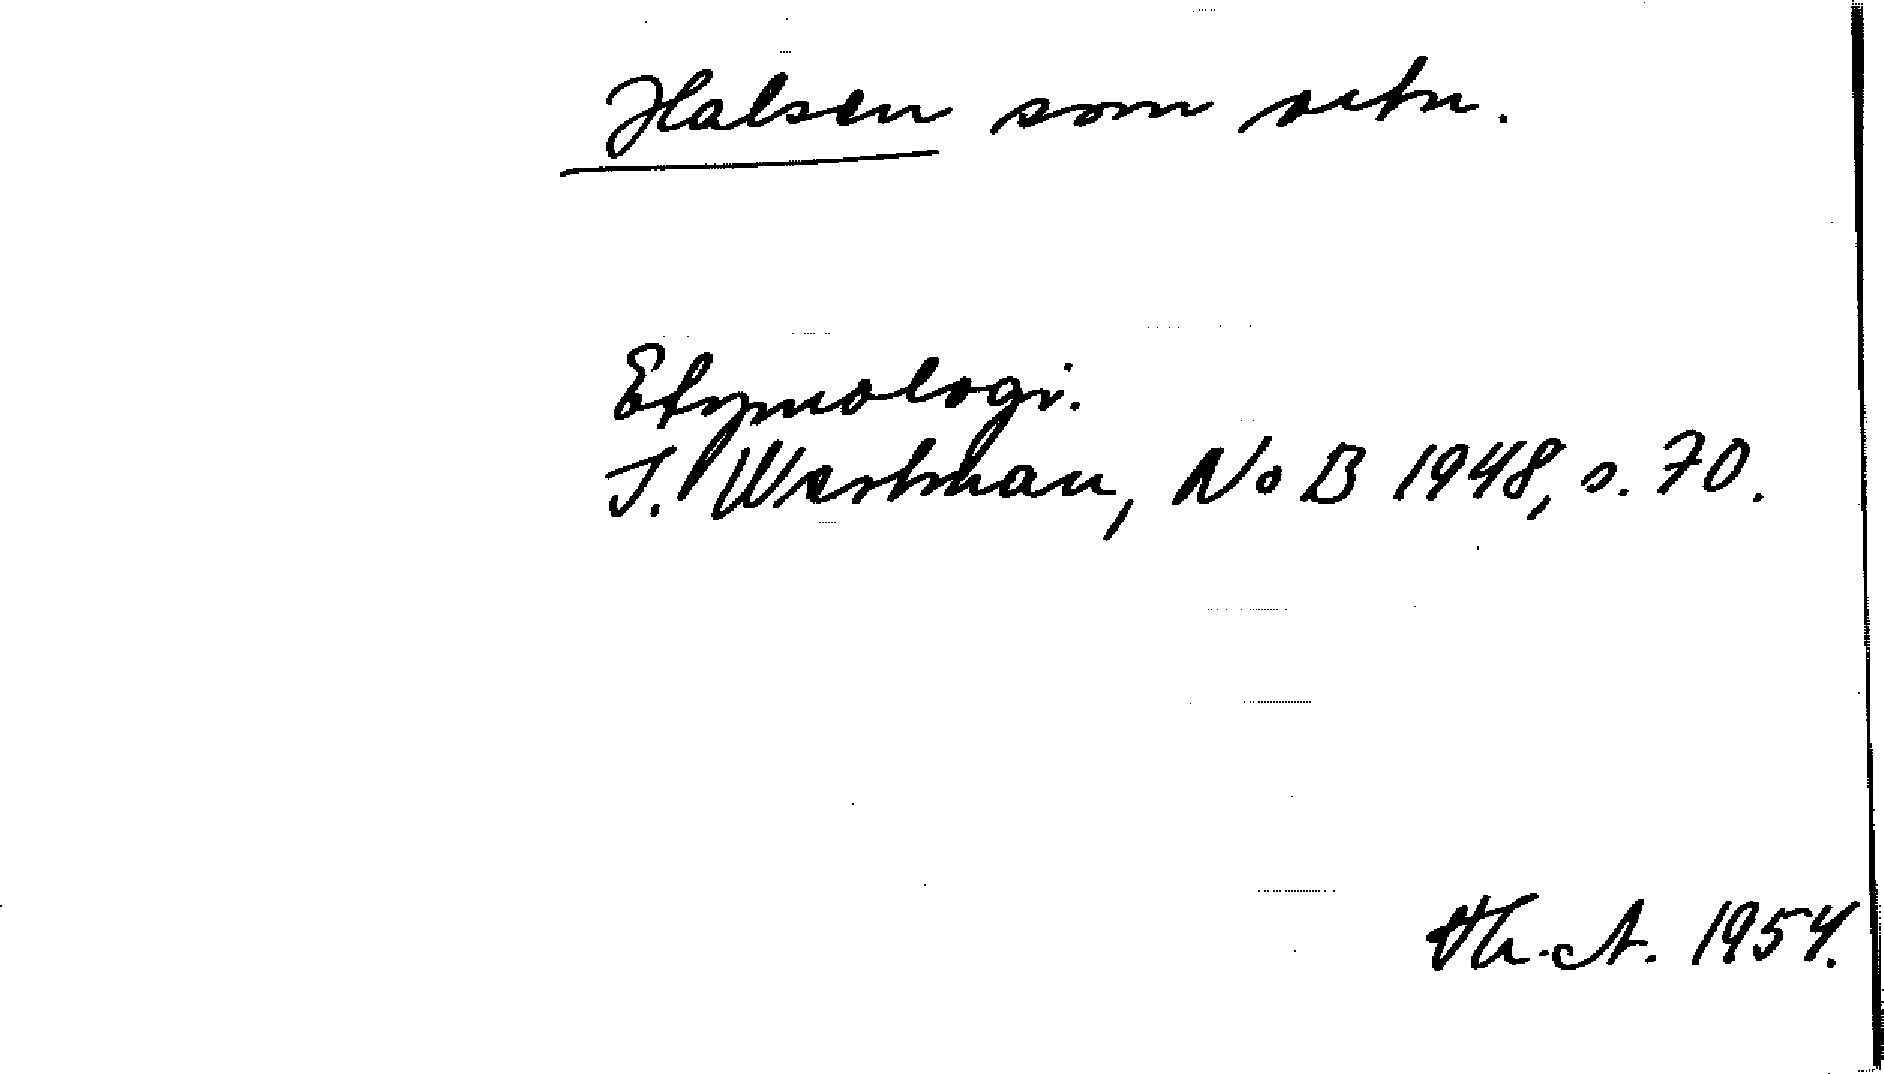 Halsen som ortn.
Etymologi.
I. Westman, NoB 1948, s. 70.
Th. A. 1954.